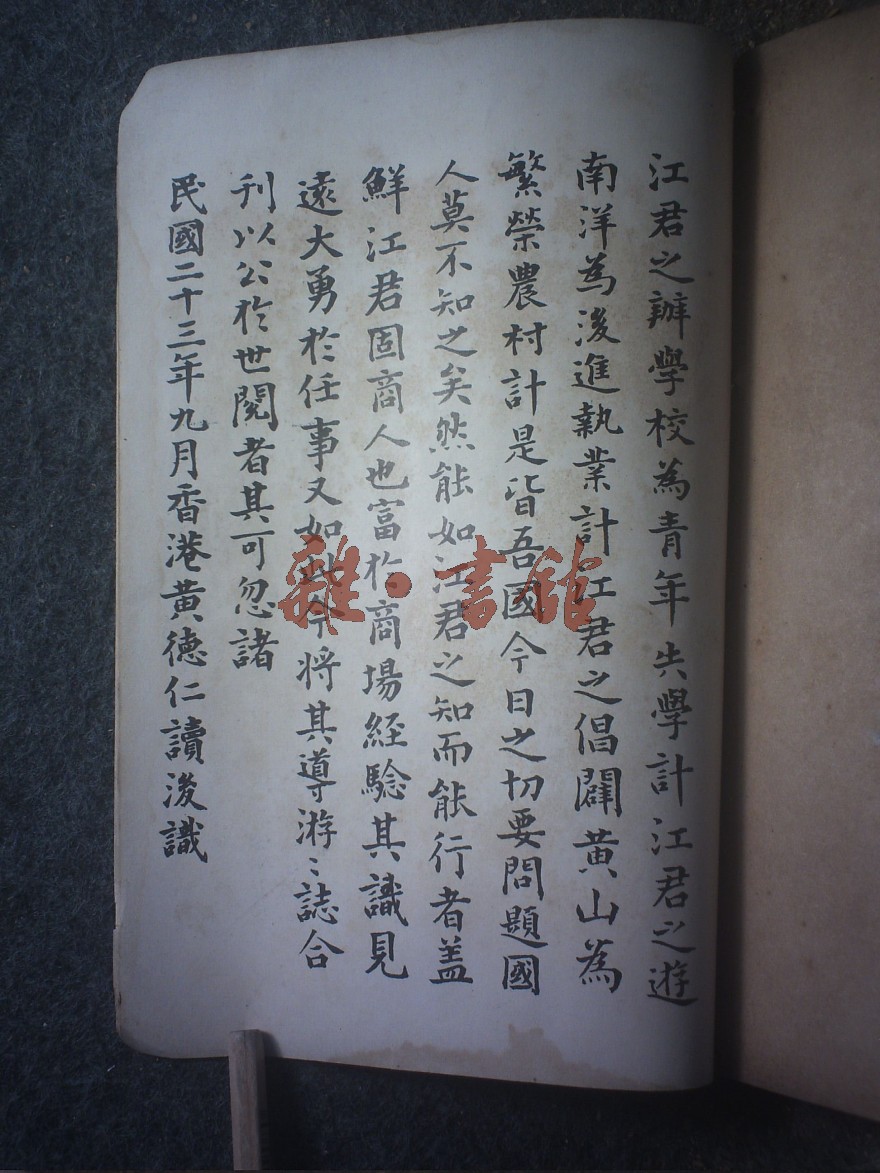 江君之辦學校為青年失學計江君之遊
南洋為後進執業計江君之倡闢黃山為
繁榮農村計是皆吾國今日之切要問題國
人莫不知之矣然能如江君之知而能行者盖
鮮江君固商人也富於商場經驗其識見
遠大勇於任事又如此今將其導游〻誌合
刊以公於世閱者其可忽諸
民國二十三年九月香港黃德仁讀後識
雜·書館